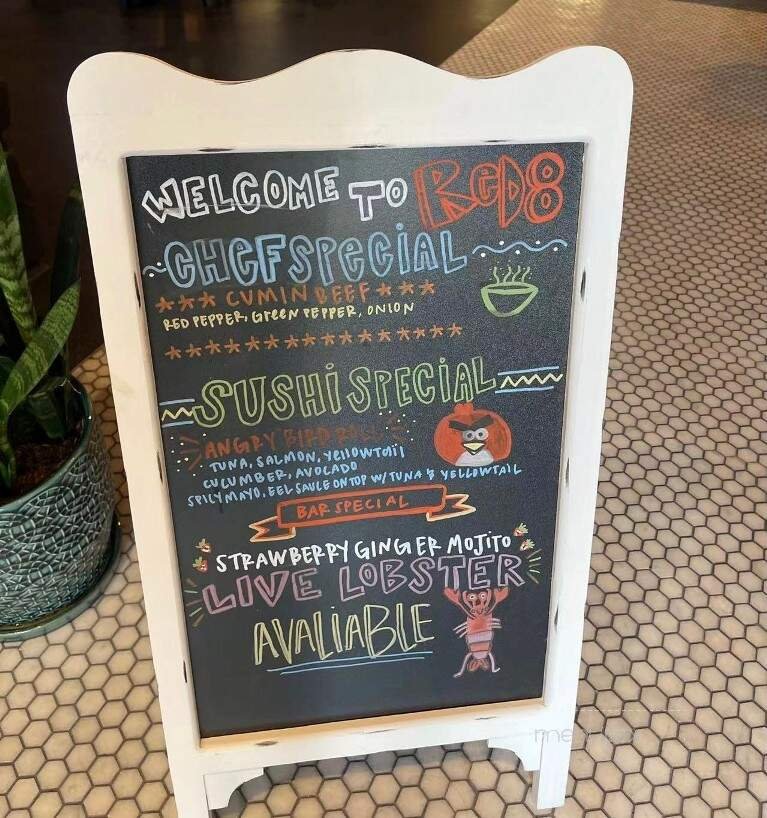 WELCOME TO RED8
CHEF SPECIAL
*** CUMIN BEEF ***
RED PEPPER, GREEN PEPPER, ONION
SUSHI SPECIAL
ANGRY BIRD ROLL
TUNA, SALMON, YELLOWTAIL
CUCUMBER, AVOCADO
SPICY MAYO, EEL SAUCE ON TOP W/TUNA & YELLOWTAIL
BAR SPECIAL
STRAWBERRY GINGER MOJITO
LIVE LOBSTER
AVALIABLE